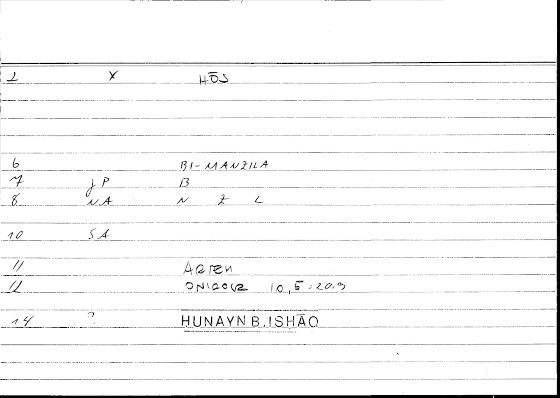 1 X HŌS
6 BI-MANZILA
7 JP B
8 NA N Z L
10 SA
11 ARTEM
12 ONIROCR 10,5-20.9
14 ? HUNAYN B. ISHĀQ